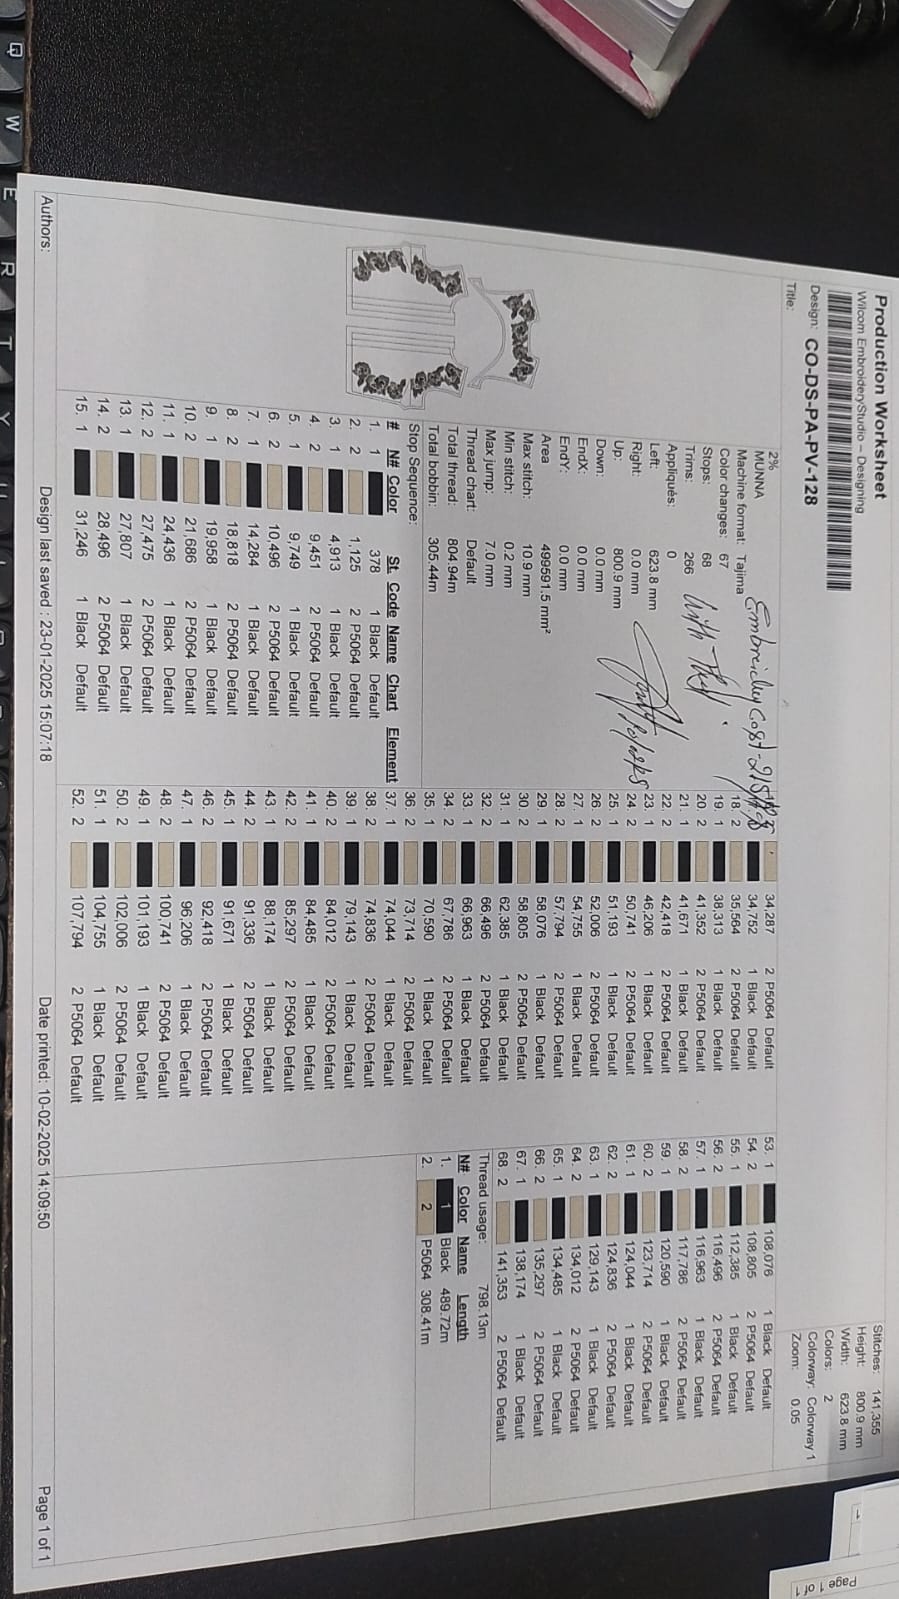 Production Worksheet
Wilcom EmbroideryStudio – Designing
Design: CO-DS-PA-PV-128
Title:
Stitches: 141,355
Height: 800.9 mm
Width: 623.8 mm
Colors: 2
Colorway: Colorway 1
Zoom: 0.05
2%
MUNNA
Machine format: Tajima
Color changes: 67
Stops: 68
Trims: 266
Appliqués: 0
Left: 623.8 mm
Right: 0.0 mm
Up: 800.9 mm
Down: 0.0 mm
EndX: 0.0 mm
EndY: 0.0 mm
Area 499591.5 mm²
Max stitch: 10.9 mm
Min stitch: 0.2 mm
Max jump: 7.0 mm
Thread chart: Default
Total thread: 804.94m
Total bobbin: 305.44m
Embroidey Cost-
With
Stop Sequence:
# N# Color St. Code Name Chart Element
1. 1 378 1 Black Default
2. 2 1,125 2 P5064 Default
3. 1 4,913 1 Black Default
4. 2 9,451 2 P5064 Default
5. 1 9,749 1 Black Default
6. 2 10,496 2 P5064 Default
7. 1 14,284 1 Black Default
8. 2 18,818 2 P5064 Default
9. 1 19,958 1 Black Default
10. 2 21,686 2 P5064 Default
11. 1 24,436 1 Black Default
12. 2 27,475 2 P5064 Default
13. 1 27,807 1 Black Default
14. 2 28,496 2 P5064 Default
15. 1 31,246 1 Black Default
34,287 2 P5064 Default
34,752 1 Black Default
18. 2 35,564 2 P5064 Default
19. 1 38,313 1 Black Default
20. 2 41,352 2 P5064 Default
21. 1 41,671 1 Black Default
22. 2 42,418 2 P5064 Default
23. 1 46,206 1 Black Default
24. 2 50,741 2 P5064 Default
25. 1 51,193 1 Black Default
26. 2 52,006 2 P5064 Default
27. 1 54,755 1 Black Default
28. 2 57,794 2 P5064 Default
29. 1 58,076 1 Black Default
30. 2 58,805 2 P5064 Default
31. 1 62,385 1 Black Default
32. 2 66,496 2 P5064 Default
33. 1 66,963 1 Black Default
34. 2 67,786 2 P5064 Default
35. 1 70,590 1 Black Default
36. 2 73,714 2 P5064 Default
37. 1 74,044 1 Black Default
38. 2 74,836 2 P5064 Default
39. 1 79,143 1 Black Default
40. 2 84,012 2 P5064 Default
41. 1 84,485 1 Black Default
42. 2 85,297 2 P5064 Default
43. 1 88,174 1 Black Default
44. 2 91,336 2 P5064 Default
45. 1 91,671 1 Black Default
46. 2 92,418 2 P5064 Default
47. 1 96,206 1 Black Default
48. 2 100,741 2 P5064 Default
49. 1 101,193 1 Black Default
50. 2 102,006 2 P5064 Default
51. 1 104,755 1 Black Default
52. 2 107,794 2 P5064 Default
53. 1 108,076 1 Black Default
54. 2 108,805 2 P5064 Default
55. 1 112,385 1 Black Default
56. 2 116,496 2 P5064 Default
57. 1 116,963 1 Black Default
58. 2 117,786 2 P5064 Default
59. 1 120,590 1 Black Default
60. 2 123,714 2 P5064 Default
61. 1 124,044 1 Black Default
62. 2 124,836 2 P5064 Default
63. 1 129,143 1 Black Default
64. 2 134,012 2 P5064 Default
65. 1 134,485 1 Black Default
66. 2 135,297 2 P5064 Default
67. 1 138,174 1 Black Default
68. 2 141,353 2 P5064 Default
Thread usage: 798.13m
N# Color Name Length
1. 1 Black 489.72m
2. 2 P5064 308.41m
Authors:
Design last saved : 23-01-2025 15:07:18
Date printed: 10-02-2025 14:09:50
Page 1 of 1
Page 1 of 1
Q
W
E
R
T
Y